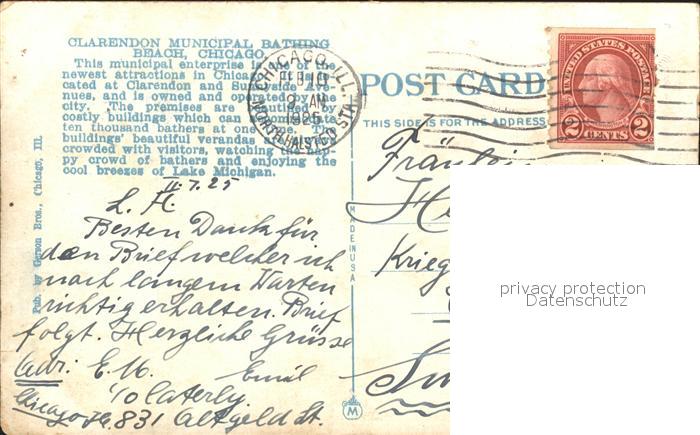 CLARENDON MUNICIPAL BATHING
BEACH, CHICAGO.
This municipal enterprise is one of the
newest attractions in Chicago. It is lo-
cated at Clarendon and Sunnyside Ave-
nues, and is owned and operated by the
city. The premises are studded by
costly buildings which can accommodate
ten thousand bathers at one time. The
buildings' beautiful verandas are
crowded with visitors, watching the hap-
py crowd of bathers and enjoying the
cool breezes of Lake Michigan.
Pub. by Gerson Bros., Chicago, Ill.
CHICAGO, ILL.
FEB 10
9 AM
1925
NORTH HALSTED STA.
POST CARD
THIS SIDE IS FOR THE ADDRESS
UNITED STATES POSTAGE
2 CENTS 2
MADE IN USA
M
II.7.25
L. H.
Besten Dank für
den Brief welcher ich
nach langem Warten
richtig erhalten. Brief
folgt. Herzliche Grüsse
Emil
Adr: E. M.
℅ Laterly.
Chicago Ill. 831 Altgeld St.
Fräulein
He
Krieg
privacy protection
Datenschutz